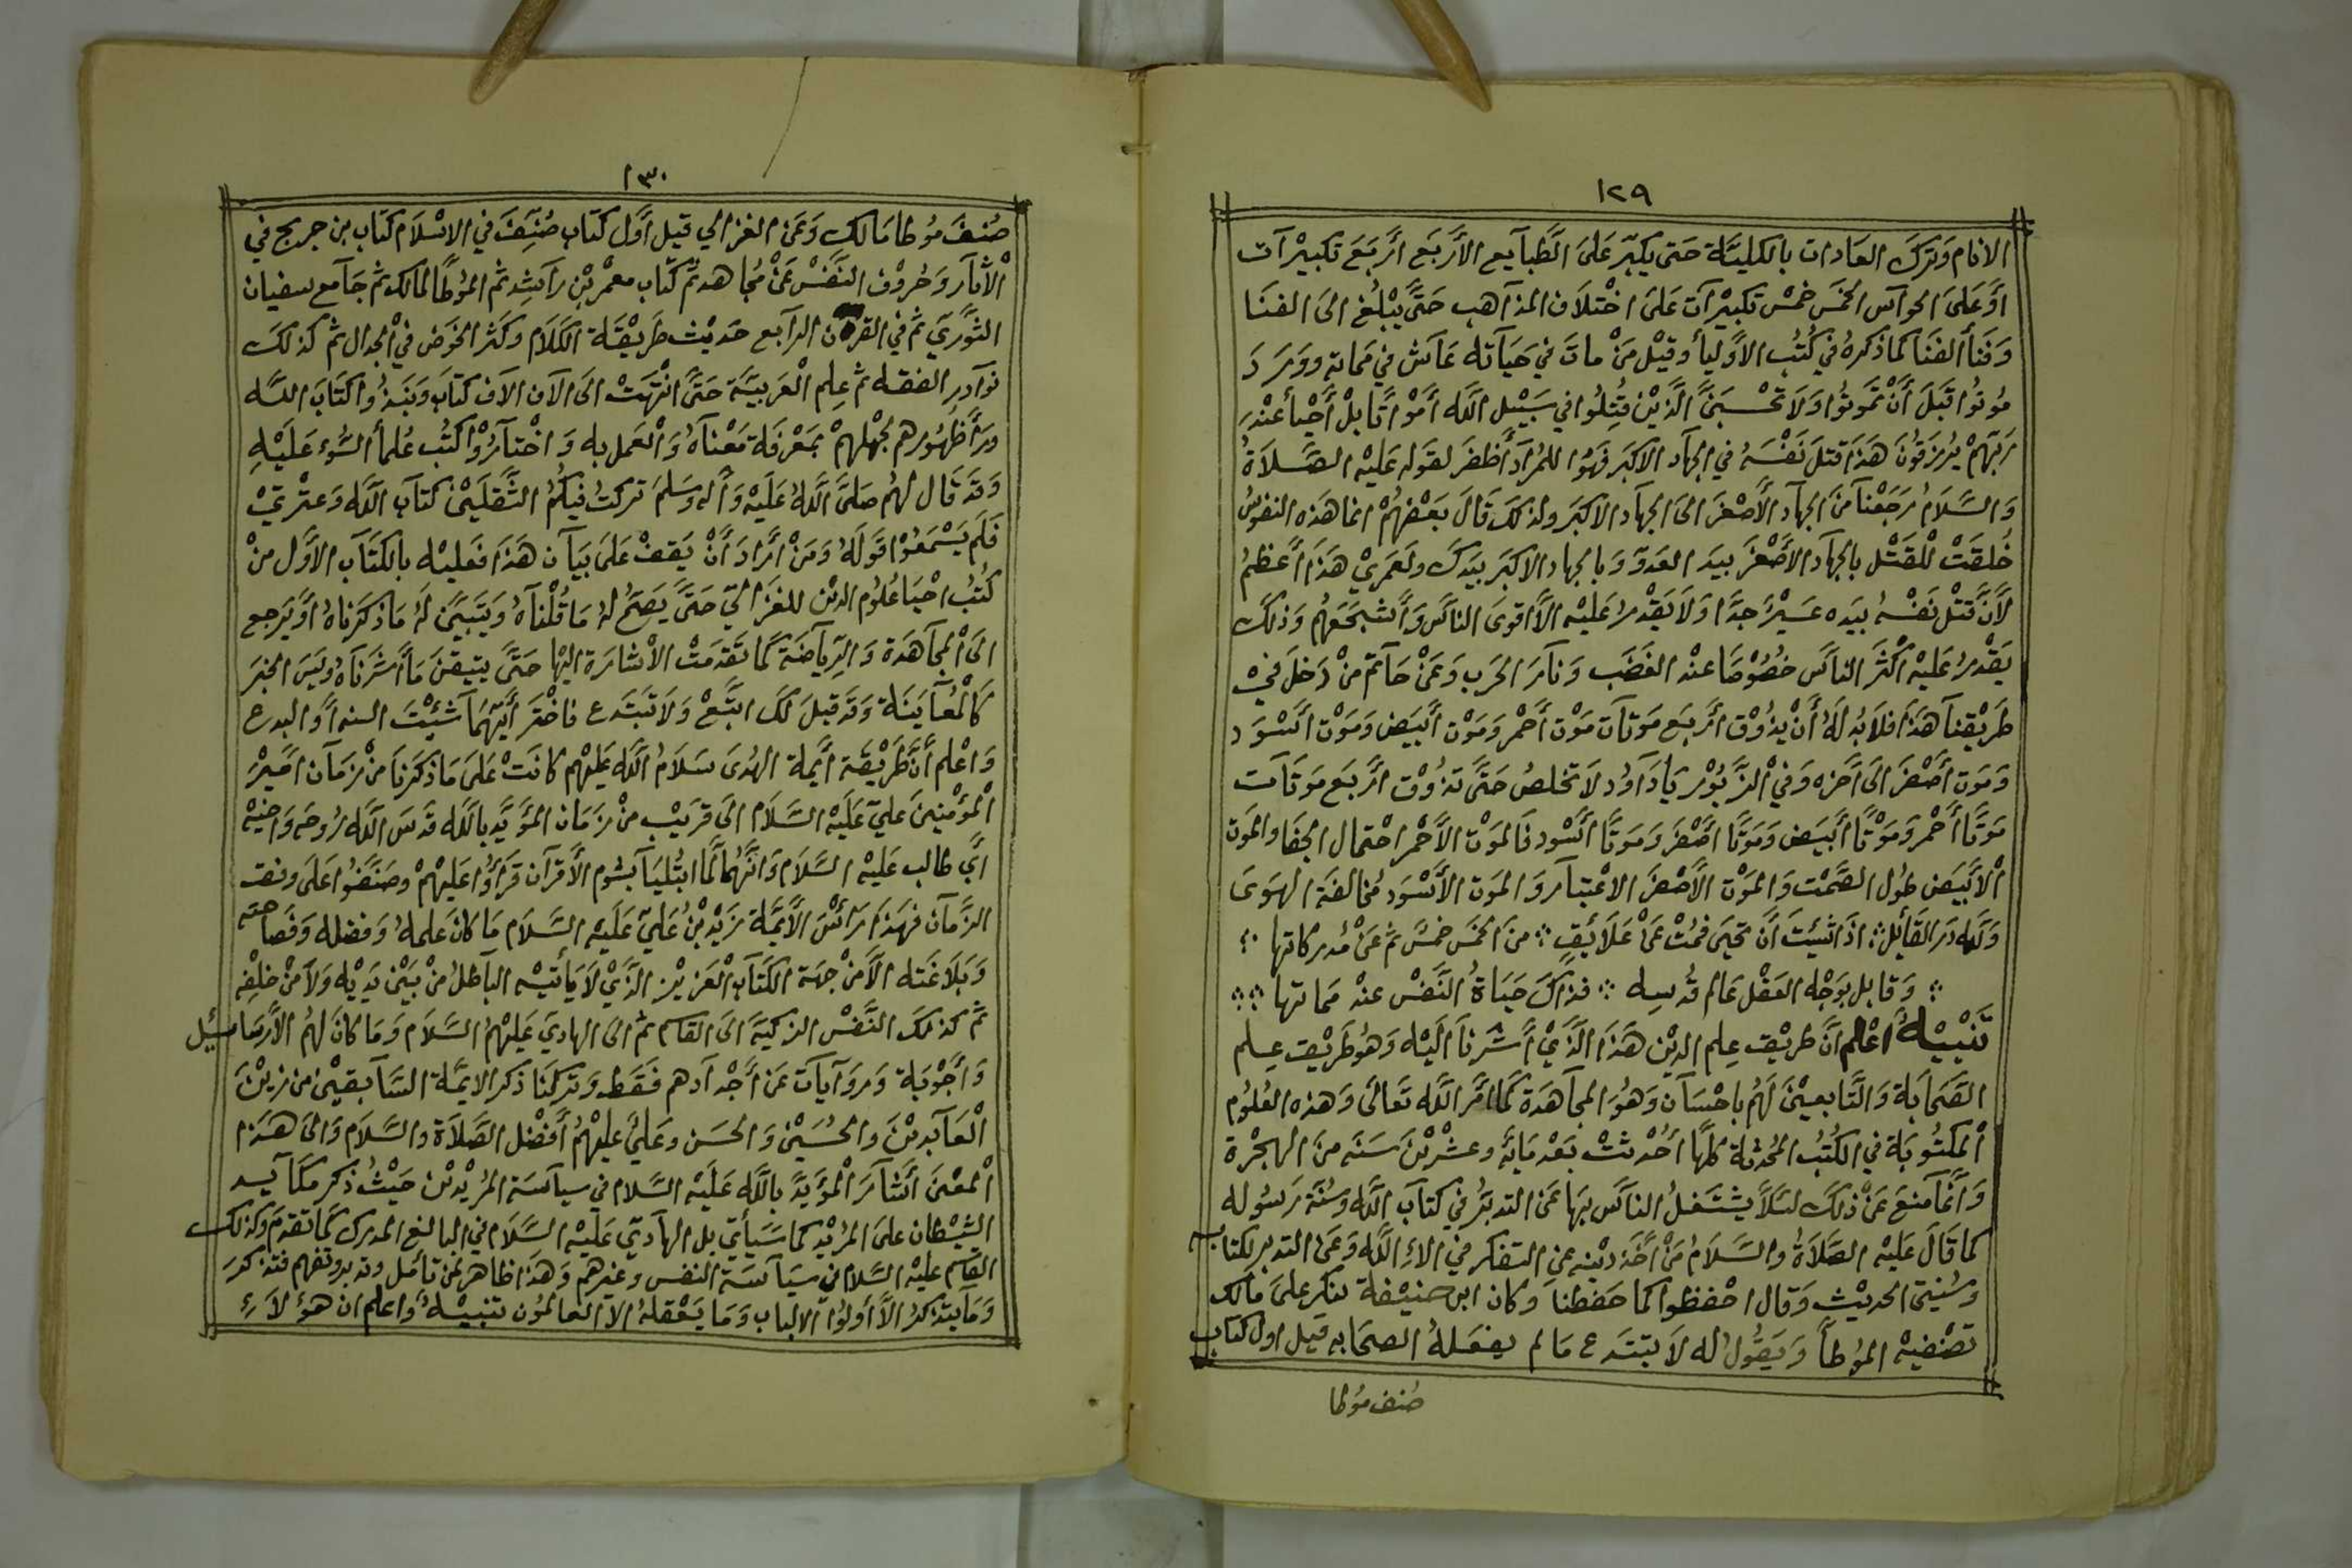 ١٢٩
الانام وَترَكَ العَادات بالكليَّة حَتى يكبّر عَلىَ الطَّبآيع الأرَبَع أرَبَعَ تكبيْرآت
اوَ عَلىَ الحوآس الخمَس خمْس تكبيْرآت عَلىَ اختْلاَف المذآهب حَتَّى يْبلُغ الىَ الفنَا
وَفنَأ الفنَا كماَ ذكرهُ في كُتُب الأوَليأ وقيْل مَنْ ماتَ في حَيَآته عَآش في مَماته ووَرَدَ
مُوتُوا قبَلَ أنَْ تمَوتُوا وَلاَ تحْسَبَنَّ الَّذيْن قُتِلُوا في سَبَيْل الله أمَوْاتًا بلْ أحْيأ عنْدَ
رَبّهمْ يُرْزقوُنَ هَذَا قتلَ نَفْسَهُ في الجهآد الاكبَر فهَوُ المُرآد أظفَر لقوَله عَليْه الصَّلاَةُ
وَالسَّلاَمُ رَجَعْنَا منَ الجهآد الأصْغَر الىَ الجهآد الاكبَر ولذلكَ قَالَ بَعْضُهُمْ انما هَذه النفوُس
خُلقَتْ للقَتْل بالجهآد الأصْغَر بيَد العَدوّ وَبالجهاد الاكبَر بَيَدكَ ولَعَمريْ هَذَا أعَظمُ
لأنَّ قتْل نَفْسهُ بيَده عَسيْر جدَّا وَلاَ يَقْدرُ عَليْه الأَّ اقوىَ الناَّس وَأشجَعَهُم وَذلكَ
يَقْدرُ عَليْه اكثَر الناَّس خصُوْصًا عنْد الغَضَب وَنآر الحَرب وَعَنْ حَآتم منْ دَخلَ فيْ
طَريْقنآ هَذَا فلاَبُد لَهُ أنَْ يذُوْق أرَبع مَوتآت مَوْت أحَمْر وَمَوْت أبَيَض وَمَوْت أسَْوَد
وَمَوت أصْفَر الىَ آخره وَفي الزَّبُوْر يَا دَآوُد لاَ تخلصُ حَتَّى تذُوْق ارَبَع مَوتآت
مَوتًا أحَمْر وَمَوْتًا أبيَض وَمَوتًا اصْفَر وَمَوتًا أسْود فَالموَت الأحْمر احْتمال الجفَا والموَت
الأبْيَض طوُل الصَّمْت وَالموَت الأصْفَر الاعْتبآر وَالموَت الأسْوَد مُخالفَة الهَوىَ
وَلله دَر القَآئل ؞ اذَا شئتَ انَ تحيَى فمُتْ عَنْ عَلاَئقٍ ؞ منَ الخمَس خمْسٌ ثم عَنْ مُدركاتها ؞
؞ وَقابل بوَجْه العَقْل عَالم قُدسه ؞ فذَاكَ حَيَاةُ النَّفْس عنْد مَماتها ؞؞
تَنْبيْهُ اعْلم انَّ طريْق علم الديْن هَذَا الَّذيْ أشَرناَ الَيْه وَهُو طَريْق علم
الصَّحَابَة وَالتَّابعيْن لَهُم باحْسَان وَهُوَ المجآهَدة كَما امَر الله تَعَالىَ وَهذه العُلوُم
المكتُوبَة في الكُتُب المُحدثة كلهّا أحُدثتْ بَعْد مَايَة وعشْريْن سَنَه منَ الهجْرة
وَانَّما منعَ عَنْ ذلكَ لئلاَّ يشْتَغلُ الناسَ بهَا عَنْ التدبرُ في كتابَ الله وَسُنة رَسُوله
كما قَالَ عَليْه الصَلاَةُ والسَّلاَمُ مَنْ أخَذ ديْنه عن التفكر في الاءِ الله وَعَن التدبر لكتابه
وسُنيتى الحديْث وَقال احْفظوا كما حَفظنا وَكان ابن حنيْفة ينكر علىَ مالك
تصْنفيه الموُطأ وَيَقُولُ له لاَ تبتَدع مَا لم يفعَلهُ الصحَابه قيل اول كتاب
صُنف مُوطا
١٣٠
صُنفَ مُوطا مَالك وَعَن الغزالي قيل أوَّل كتَاب صُنِّفَ في الاسْلاَم كتَاب بن جريج في
الأثآر وَحُروْف النَّفْس عَنْ مجُاهد ثم كتَاب معمْر بْن رآشِد ثم الموُطًا لمالك ثم جَآمع سفيان
الثوَّريّ ثم في القرن الرآبع حَديْث طَريْقَة الكَلاَم وكثر الخوَض في الجدال ثم كذلكَ
نوَآدر الفقه ثم علم الْعَربيَّة حَتَّى انْتهَتْ الىَ الآف الآف كتَاب وَنبَذوُا كتَابَ الله
ورَآ ظهُورهم لجهْلهمْ بمَعْرفَة مَعْنآهُ وَالْعَمل به وَاخْتآرُوْا كتُب عُلمأ السُّوء عَلَيْهِ
وَقد قَال لهُم صَلىَّ اللهُ عَلَيْه وَآله وَسَلمَ تركتُ فيْكُم الثَّقلَيْن كتَابَ الله وَعتْرتيْ
فَلَم يَسْمَعُوْا قوَلَهُ وَمَنْ أرَادَ أنَْ يَقفْ عَلىَ بيَآن هَذَا فعَليْه بالكتَاب الاوَّل منْ
كتُب احْيَا عُلوُم الديْن للغَزَاليّ حَتَّى يَصَحُّ لهُ مَا قُلْنآهُ وَيَتبَيَّن لهُ مَا ذكَرناهُ اوَ يَرجع
الىَ المجآهَدَة وَالرِّيآضَة كَما تقَدمَتْ الأشارَة اليْها حَتَّى يتيقنَ مَا أشَرنَاهُ وليَس الخبَر
كَالْمُعَآيَنَة وَقد قيلَ لكَ اتبَّعْ وَلاَ تبَتدع فاخْتَر أيَّهمُا شئْتَ السنه أو البدع
وَاعْلم أنَّ طَريْقَة أيمَة الهُدىَ سَلاَمُ الله عَليْهم كانَتْ عَلىَ مَا ذكَرنَا منْ زمَآن امَيْر
المؤَمْنينَ عَليّ عَلَيْه السَّلاَم الىَ قَريْب منْ زمَان المؤَيَّد بالله قَدسَ الله رُوحَه وَاخيْه
أبَي طالب عَليْه السَّلاَم وَانهَّما لمَّا ابتُليَا بشُوم الأقْرآن قَرَأوُا عَليْهمْ وصَنَّفُوا عَلىَ وفق
الزَّمآن فهَذَا رَأسْ الأيمَّة زَيْد بْنُ عَليّ عَلَيْه السَّلاَم مَا كانَ علمهُ وَفضله وَفَصَاحَته
وَبَلاَغَته الأَّ منْ جهَة الكتَاب العَزيْز الذَّيْ لاَ يَأتيْه البآطلُ منْ بَيْن يَدَيْه وَلاَ منْ خلْفِه
ثم كذلكَ النَّفْس الزكيَة الىَ القاسم ثم الىَ الهاديّ عَليْهمُ السَّلاَم وَمَا كانَ لهُم الأَّ رسَائيل
وَأجْوبَة وَروَآيَات عَن أجْدآدهم فقَط وَتركنَا ذكر الايمَّة السَّآبقيْن من زيْن
الْعَآبديْن والحُسَيْن وَالحسَن وعَليٍّ عليْهمُ أفَضْل الصَّلاَة والسَّلاَم وَالىَ هَذا
الْمعْنىَ أشَآرَ الْمؤَيَّد بالله عَلَيْه السَّلام في سيآسَة المُريْديْن حَيْثُ ذكر مكَآيد
الشيْطان علىَ المُريْد كماَ سَيأتي بل الهآديّ عَليْه السَّلاَم في البالغ المدرك كَما تقدمَ وكذلك
القاسم عليْه السَّلام في سيَآسَة النفس وغيرهم وَهَذا ظاهر لمن تأمل وتدبر وتفهم فتذكرَ
وَمَا يتذكرُ الاَّ أوُلوُا الألباب وَمَا يَعْقلهُ الا العَالموُن تنبيْهُ واعلم ان هؤلاَءِ